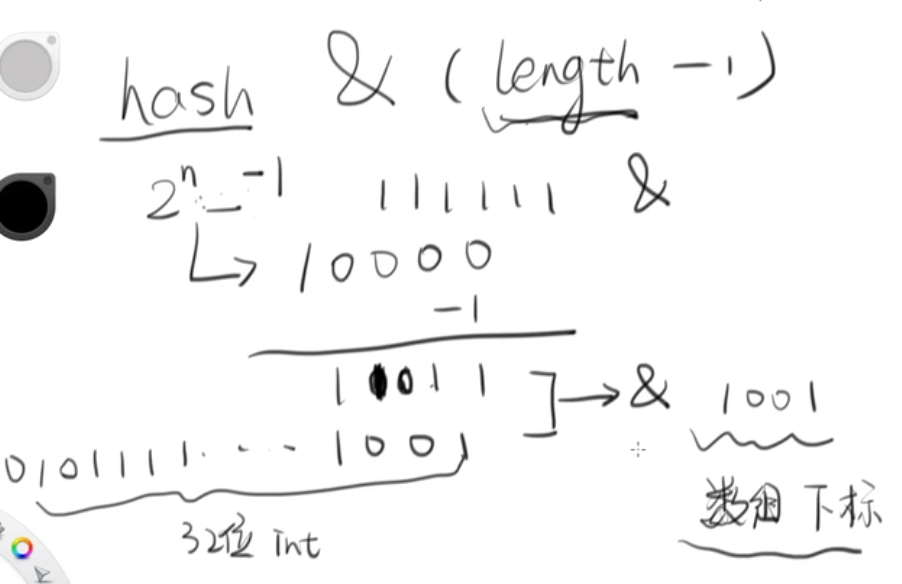 hash & (length -1)
2ⁿ -1 111111 &
10000
-1
1 0 1 1 → & 1001
0101111... 1001
数组下标
32位 int